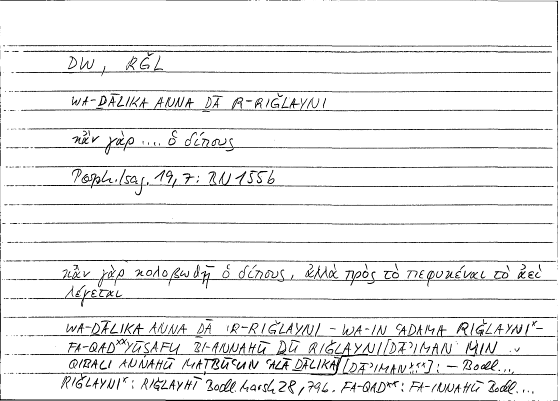 DW, RǦL
WA-ḎĀLIKA ANNA ḎĀ R-RIǦLAYNI
κἂν γὰρ .... ὁ δίπους
Porph. Isag. 19, 7: BN 155b
κἂν γὰρ κολοβωθῇ ὁ δίπους, ἀλλὰ πρὸς τὸ πεφυκέναι τὸ ἀεὶ
λέγεται
WA-ḎĀLIKA ANNA ḎĀ 'R-RIǦLAYNI – WA-IN ʿADAMA RIǦLAYNIˣ –
FA-QADˣˣ YŪṢAFU BI-ANNAHŪ ḎŪ RIǦLAYNI [DĀʾIMAN MIN
QIBALI ANNAHŪ MAṬBŪʿUN ʿALĀ ḎĀLIKA] [DĀʾIMANˣˣˣ]: – Bodl...,
RIǦLAYNIˣ: RIǦLAYHĪ Bodl. Marsh 28, 79b. FA-QADˣˣ: FA-INNAHŪ Bodl...